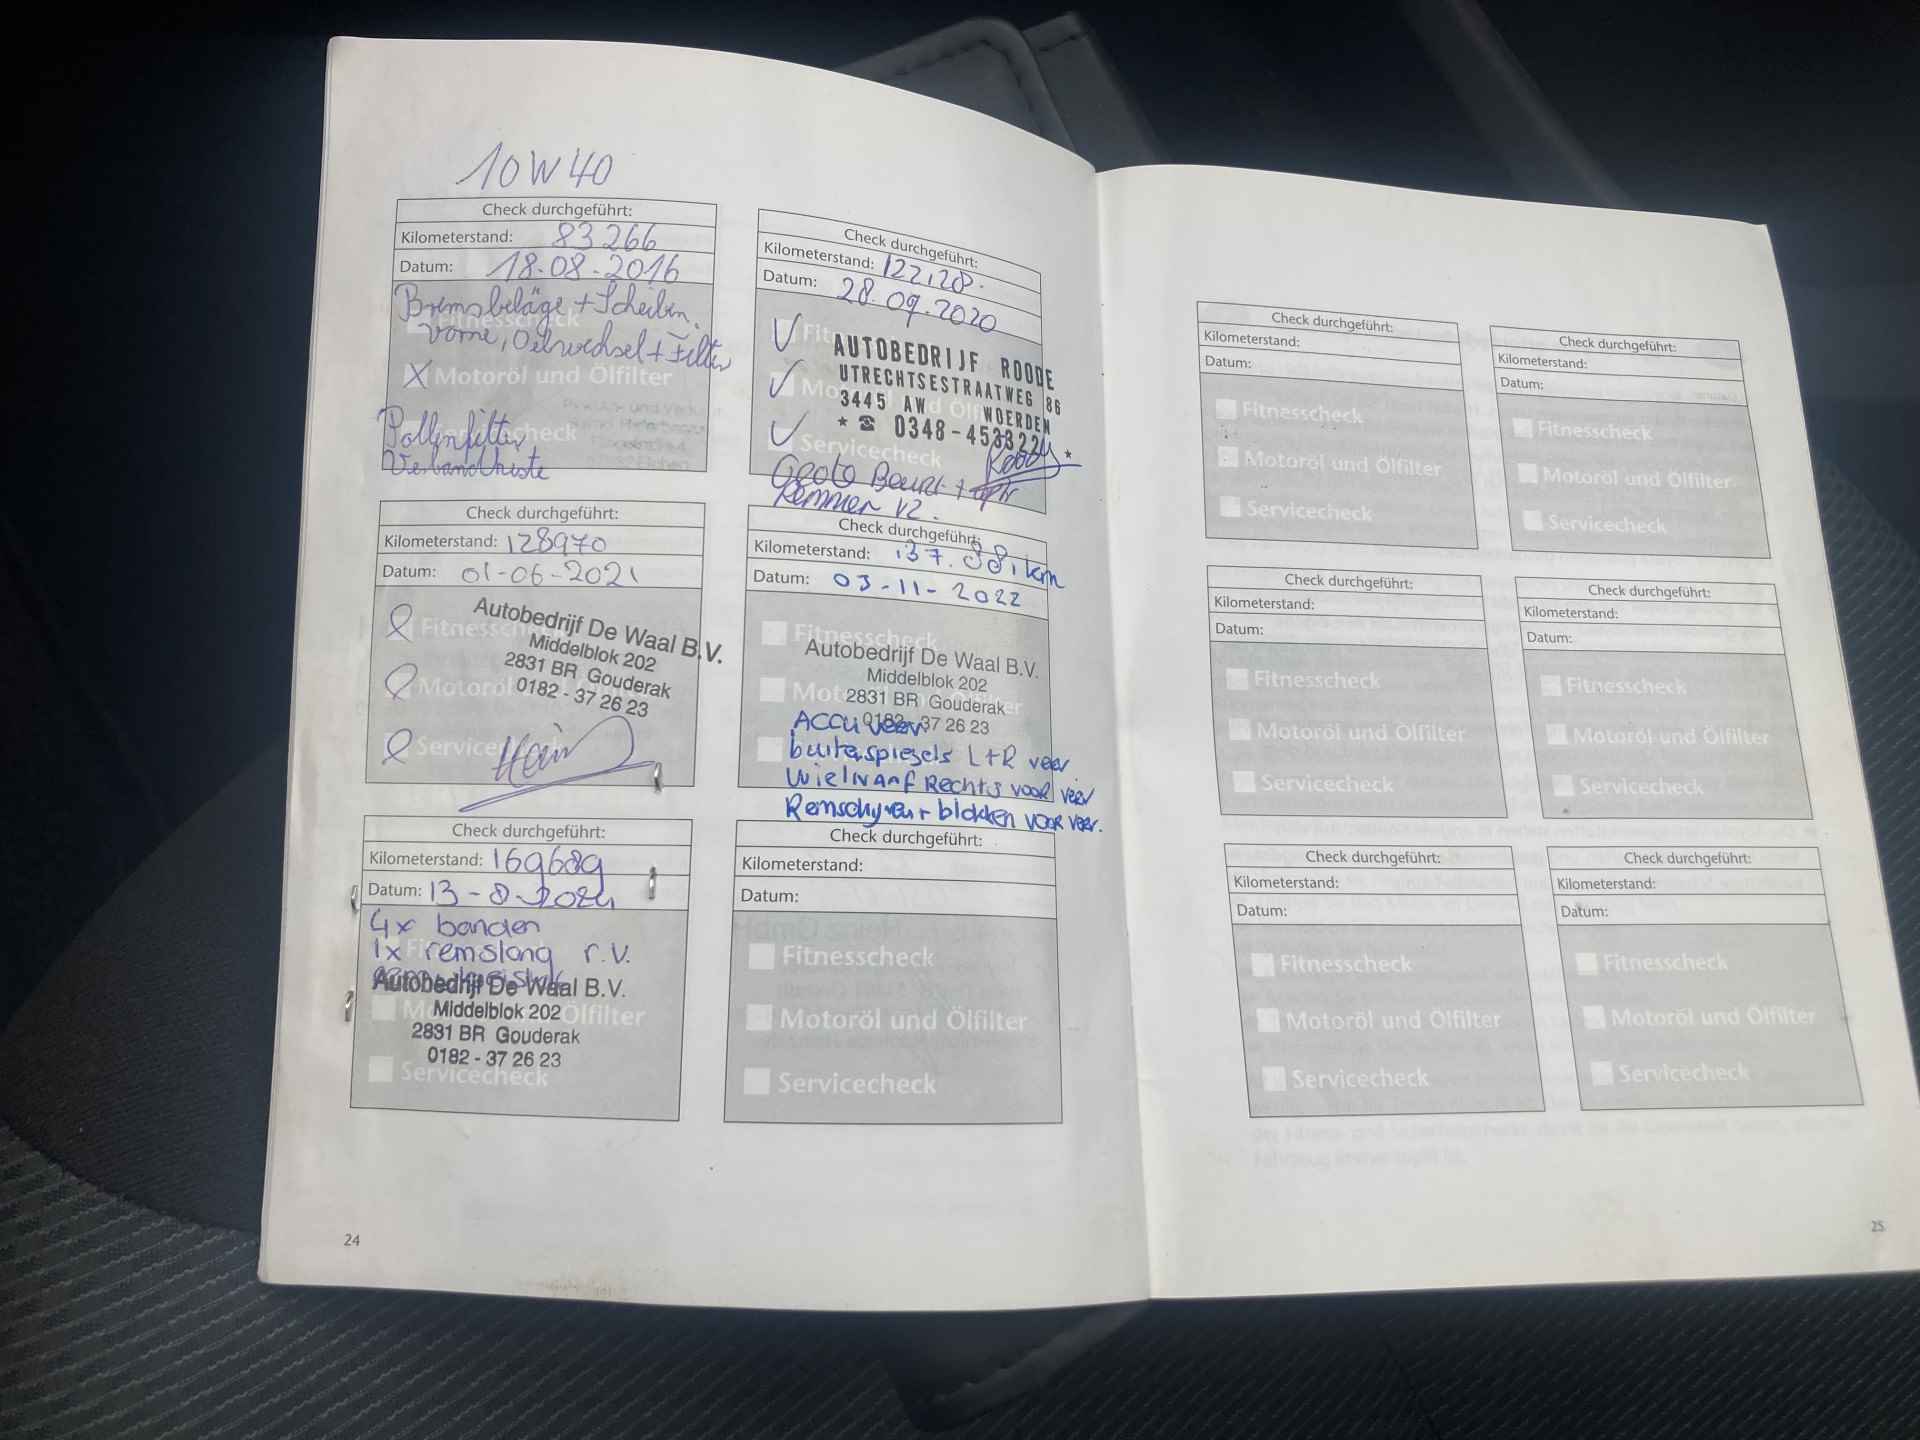 10W40
Check durchgeführt:
Kilometerstand: 83266
Datum: 18.08.2016
Bremsbeläge + Scheiben
vorne, Oelwechsel + Filter
Fitnesscheck
X Motoröl und Ölfilter
Pollenfilter
Servicecheck
Verbandkiste
Check durchgeführt:
Kilometerstand: 122128.
Datum: 28.09.2020
Fitnesscheck
AUTOBEDRIJF ROODE
UTRECHTSESTRAATWEG 86
3445 AW WOERDEN
Motoröl und Ölfilter
0348-453322
Servicecheck
Grote Beurt +
Remmen VZ.
Check durchgeführt:
Kilometerstand: 128970
Datum: 01-06-2021
Fitnesscheck
Autobedrijf De Waal B.V.
Middelblok 202
2831 BR Gouderak
0182 - 37 26 23
Motoröl und Ölfilter
Servicecheck
Check durchgeführt:
Kilometerstand: 137.881km
Datum: 03-11-2022
Fitnesscheck
Autobedrijf De Waal B.V.
Middelblok 202
Motoröl und Ölfilter
2831 BR Gouderak
0182 - 37 26 23
Accu veer
buitenspiegels L+R veer
Rechts voor veer
blokken voor veer.
Check durchgeführt:
Kilometerstand: 169689
Datum: 13-8-2024
4x banden
1x remslang r.V.
Autobedrijf De Waal B.V.
Middelblok 202
Motoröl und Ölfilter
2831 BR Gouderak
0182 - 37 26 23
Servicecheck
Check durchgeführt:
Kilometerstand:
Datum:
Fitnesscheck
Motoröl und Ölfilter
Servicecheck
24
Check durchgeführt:
Kilometerstand:
Datum:
Fitnesscheck
Motoröl und Ölfilter
Servicecheck
Check durchgeführt:
Kilometerstand:
Datum:
Fitnesscheck
Motoröl und Ölfilter
Servicecheck
Check durchgeführt:
Kilometerstand:
Datum:
Fitnesscheck
Motoröl und Ölfilter
Servicecheck
Check durchgeführt:
Kilometerstand:
Datum:
Fitnesscheck
Motoröl und Ölfilter
Servicecheck
Check durchgeführt:
Kilometerstand:
Datum:
Fitnesscheck
Motoröl und Ölfilter
Servicecheck
Check durchgeführt:
Kilometerstand:
Datum:
Fitnesscheck
Motoröl und Ölfilter
Servicecheck
25